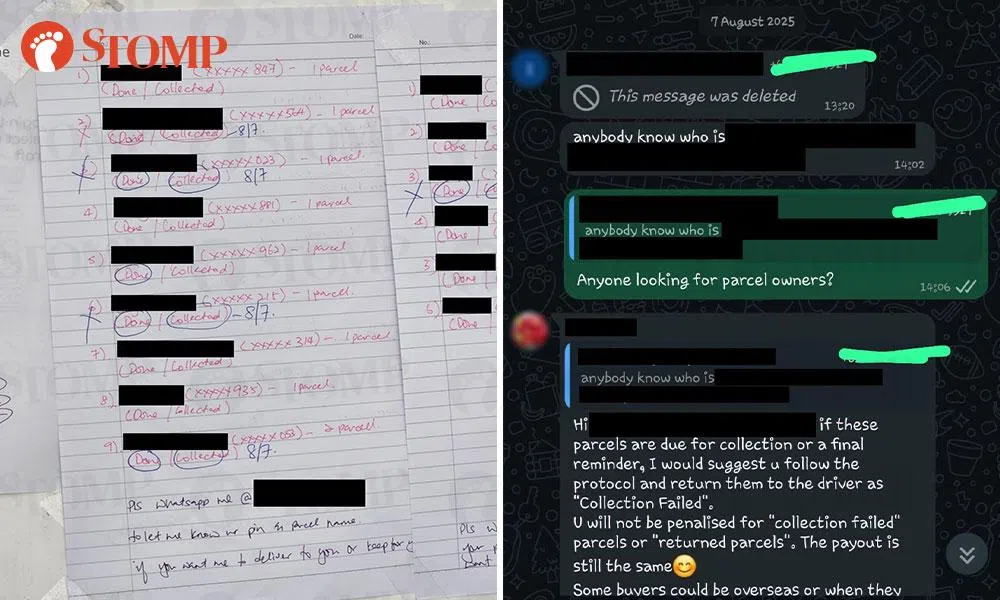 STOMP
Date:
No.:
1) (XXXXX 847) - 1 parcel
(Done / Collected)
2) (XXXXX564) - 1 parcel
(Done / Collected) - 8/7
(XXXXX023) - 1 parcel
(Done / Collected) 8/7
4) (XXXXX881) - 1 parcel
(Done / Collected)
5) (XXXXX962) - 1 parcel
(Done / Collected)
(XXXXX215) - 1 parcel.
(Done / Collected) - 8/7.
7) (XXXXX314) - 1 parcel.
(Done / Collected)
8) (XXXXX935) - 1 parcel
(Done / Collected)
9) (XXXXX053) - 2 parcel.
(Done / Collected) 8/7.
Pls whatsapp me @
to let me know ur pin & parcel name.
if you want me to deliver to you or keep for
1)
(Done
2)
(Done
3)
(Done
4)
(Done
3
(Done
6)
(Done
Pls
your
7 August 2025
This message was deleted
13:20
anybody know who is
14:02
anybody know who is
Anyone looking for parcel owners?
14:06
anybody know who is
Hi if these
parcels are due for collection or a final
reminder, I would suggest u follow the
protocol and return them to the driver as
"Collection Failed".
U will not be penalised for "collection failed"
parcels or "returned parcels". The payout is
still the same😊
Some buyers could be overseas or when they